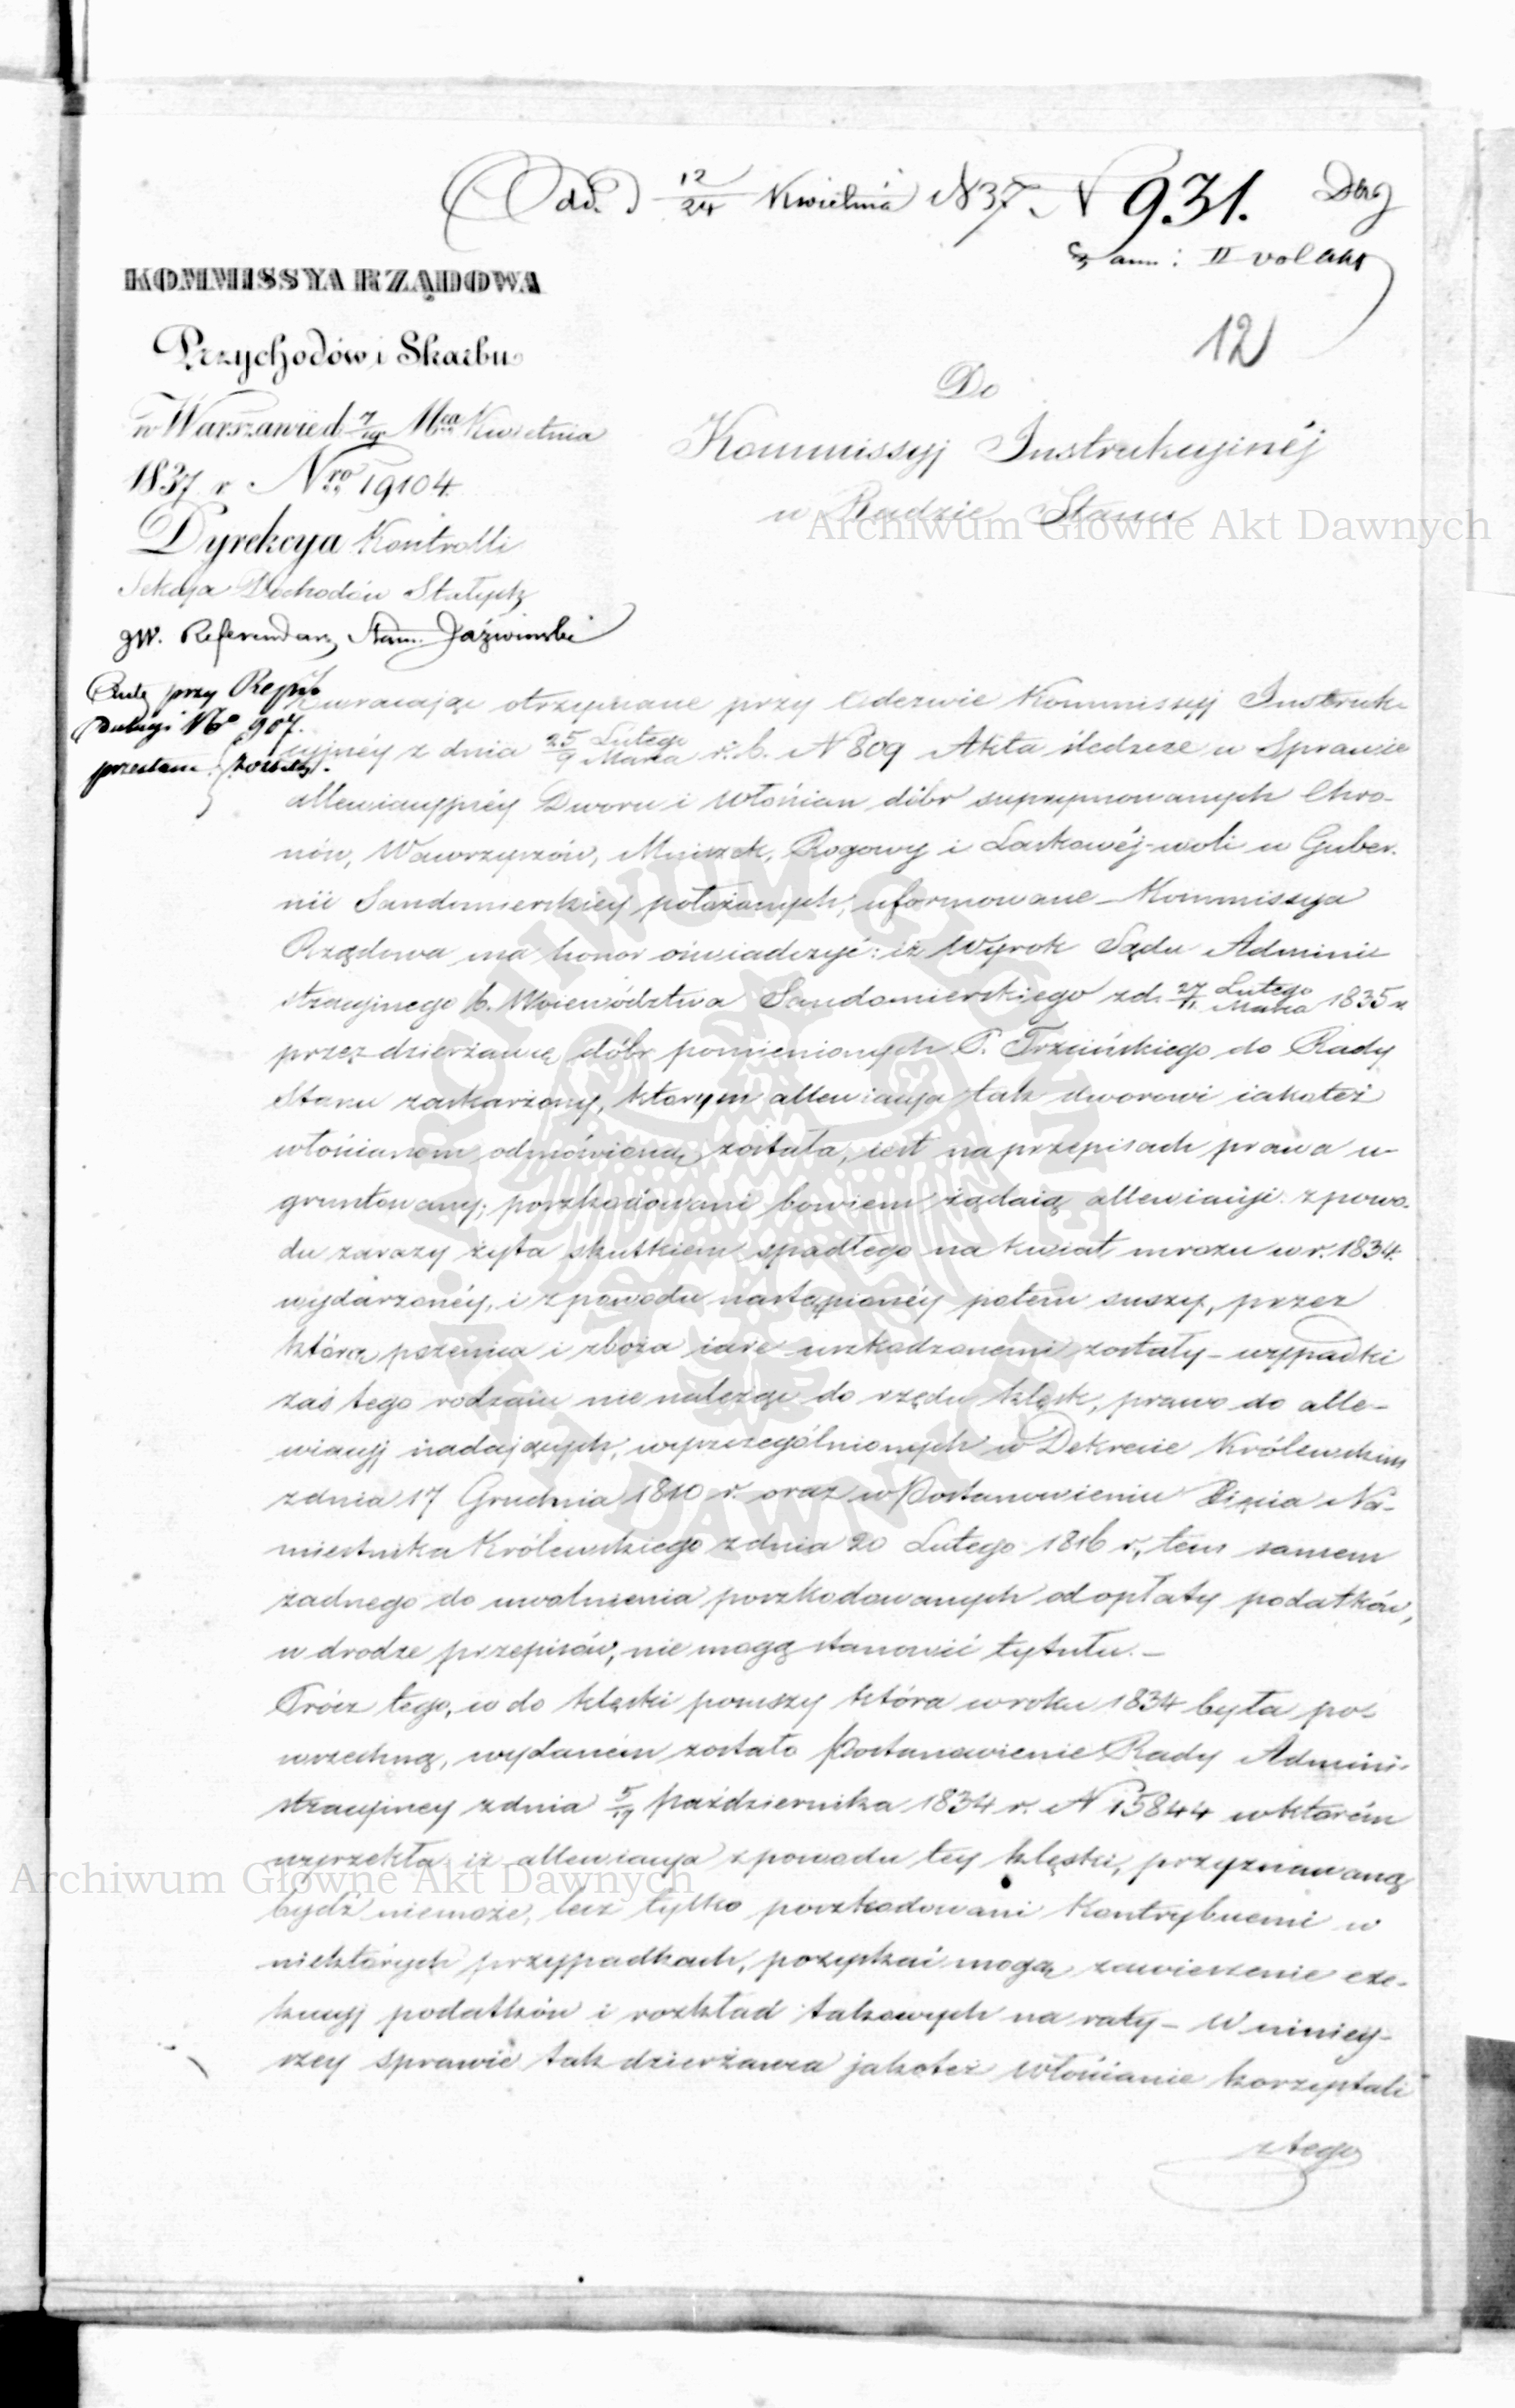 Odd. d 12/24 Kwietnia 1837. N 931.
ann: II vol akt
12
KOMMISSYA RZĄDOWA
Przychodów i Skarbu
w Warszawie d. 7/19 Mca Kwietnia
1837 r. Nro 19104.
Dyrekcya Kontrolli
Sekcya Dochodów Stałych
Referendarz Stan. Jaźwiński
Do
Kommissyj Instrukcyjnéj
w Radzie Stanu
Archiwum Główne Akt Dawnych
przy
No 907.
Zwracając otrzymane przy Odezwie Kommissyj Instruk-
cyjnéy z dnia 25 Lutego/9 Marca r. b. N 809 Akta śledcze w Sprawie
allewiacyjnéy Dworu i włościan dóbr supprymowanych Chro-
nów, Wawrzyszów, Mniszek, Rogowy i Laskowéj-woli w Guber-
nii Sandomierskiéy położonych, uformowane – Kommissya
Rządowa ma honor oświadczyć: iż Wyrok Sądu Admini-
stracyjnego b. Województwa Sandomierskiego z d. 27 Lutego/11 Marca 1835 r.
przez dzierżawcę dóbr pomienionych P. Trzcińskiego do Rady
Stanu zaskarżony, którym allewiacya tak dworowi iakoteż
włościanom odmówioną została, iest na przepisach prawa u-
gruntowany; poszkodowani bowiem żądaią allewiacyi z powo-
du zarazy żyta skutkiem spadłego na kwiat mrozu w r. 1834.
wydarzonéy, i z powodu nastąpionéy potem suszy, przez
którą pszenica i zboża iare uszkodzonemi zostały – wypadki
zaś tego rodzaiu nie należąc do rzędu klęsk, prawo do alle-
wiacyj nadających, wyszczególnionych w Dekrecie Królewskim
z dnia 17 Grudnia 1810 r. oraz w Postanowieniu Xięcia Na-
miestnika Królewskiego z dnia 20 Lutego 1816 r., tem samem
żadnego do uwolnienia poszkodowanych od opłaty podatków,
w drodze przepisów, nie mogą stanowić tytułu. –
Prócz tego, co do klęski posuszy która w roku 1834 była po-
wszechną, wydaném zostało Postanowienie Rady Admini-
stracyjney z dnia 5/17 Października 1834 r. N 15844 w którém
wyrzekła iż allewiacya z powodu tey klęski, przyznawaną
bydź niemoże, lecz tylko poszkodowani Kontrybuenci w
niektórych przypadkach, pozyskać mogą zawieszenie exe-
kucyj podatków i rozkład takowych na raty – W niniey-
szey sprawie tak dzierżawca jakoteż włościanie korzystali
z tego
Archiwum Główne Akt Dawnych
ARCHIWUM GŁÓWNE AKT DAWNYCH